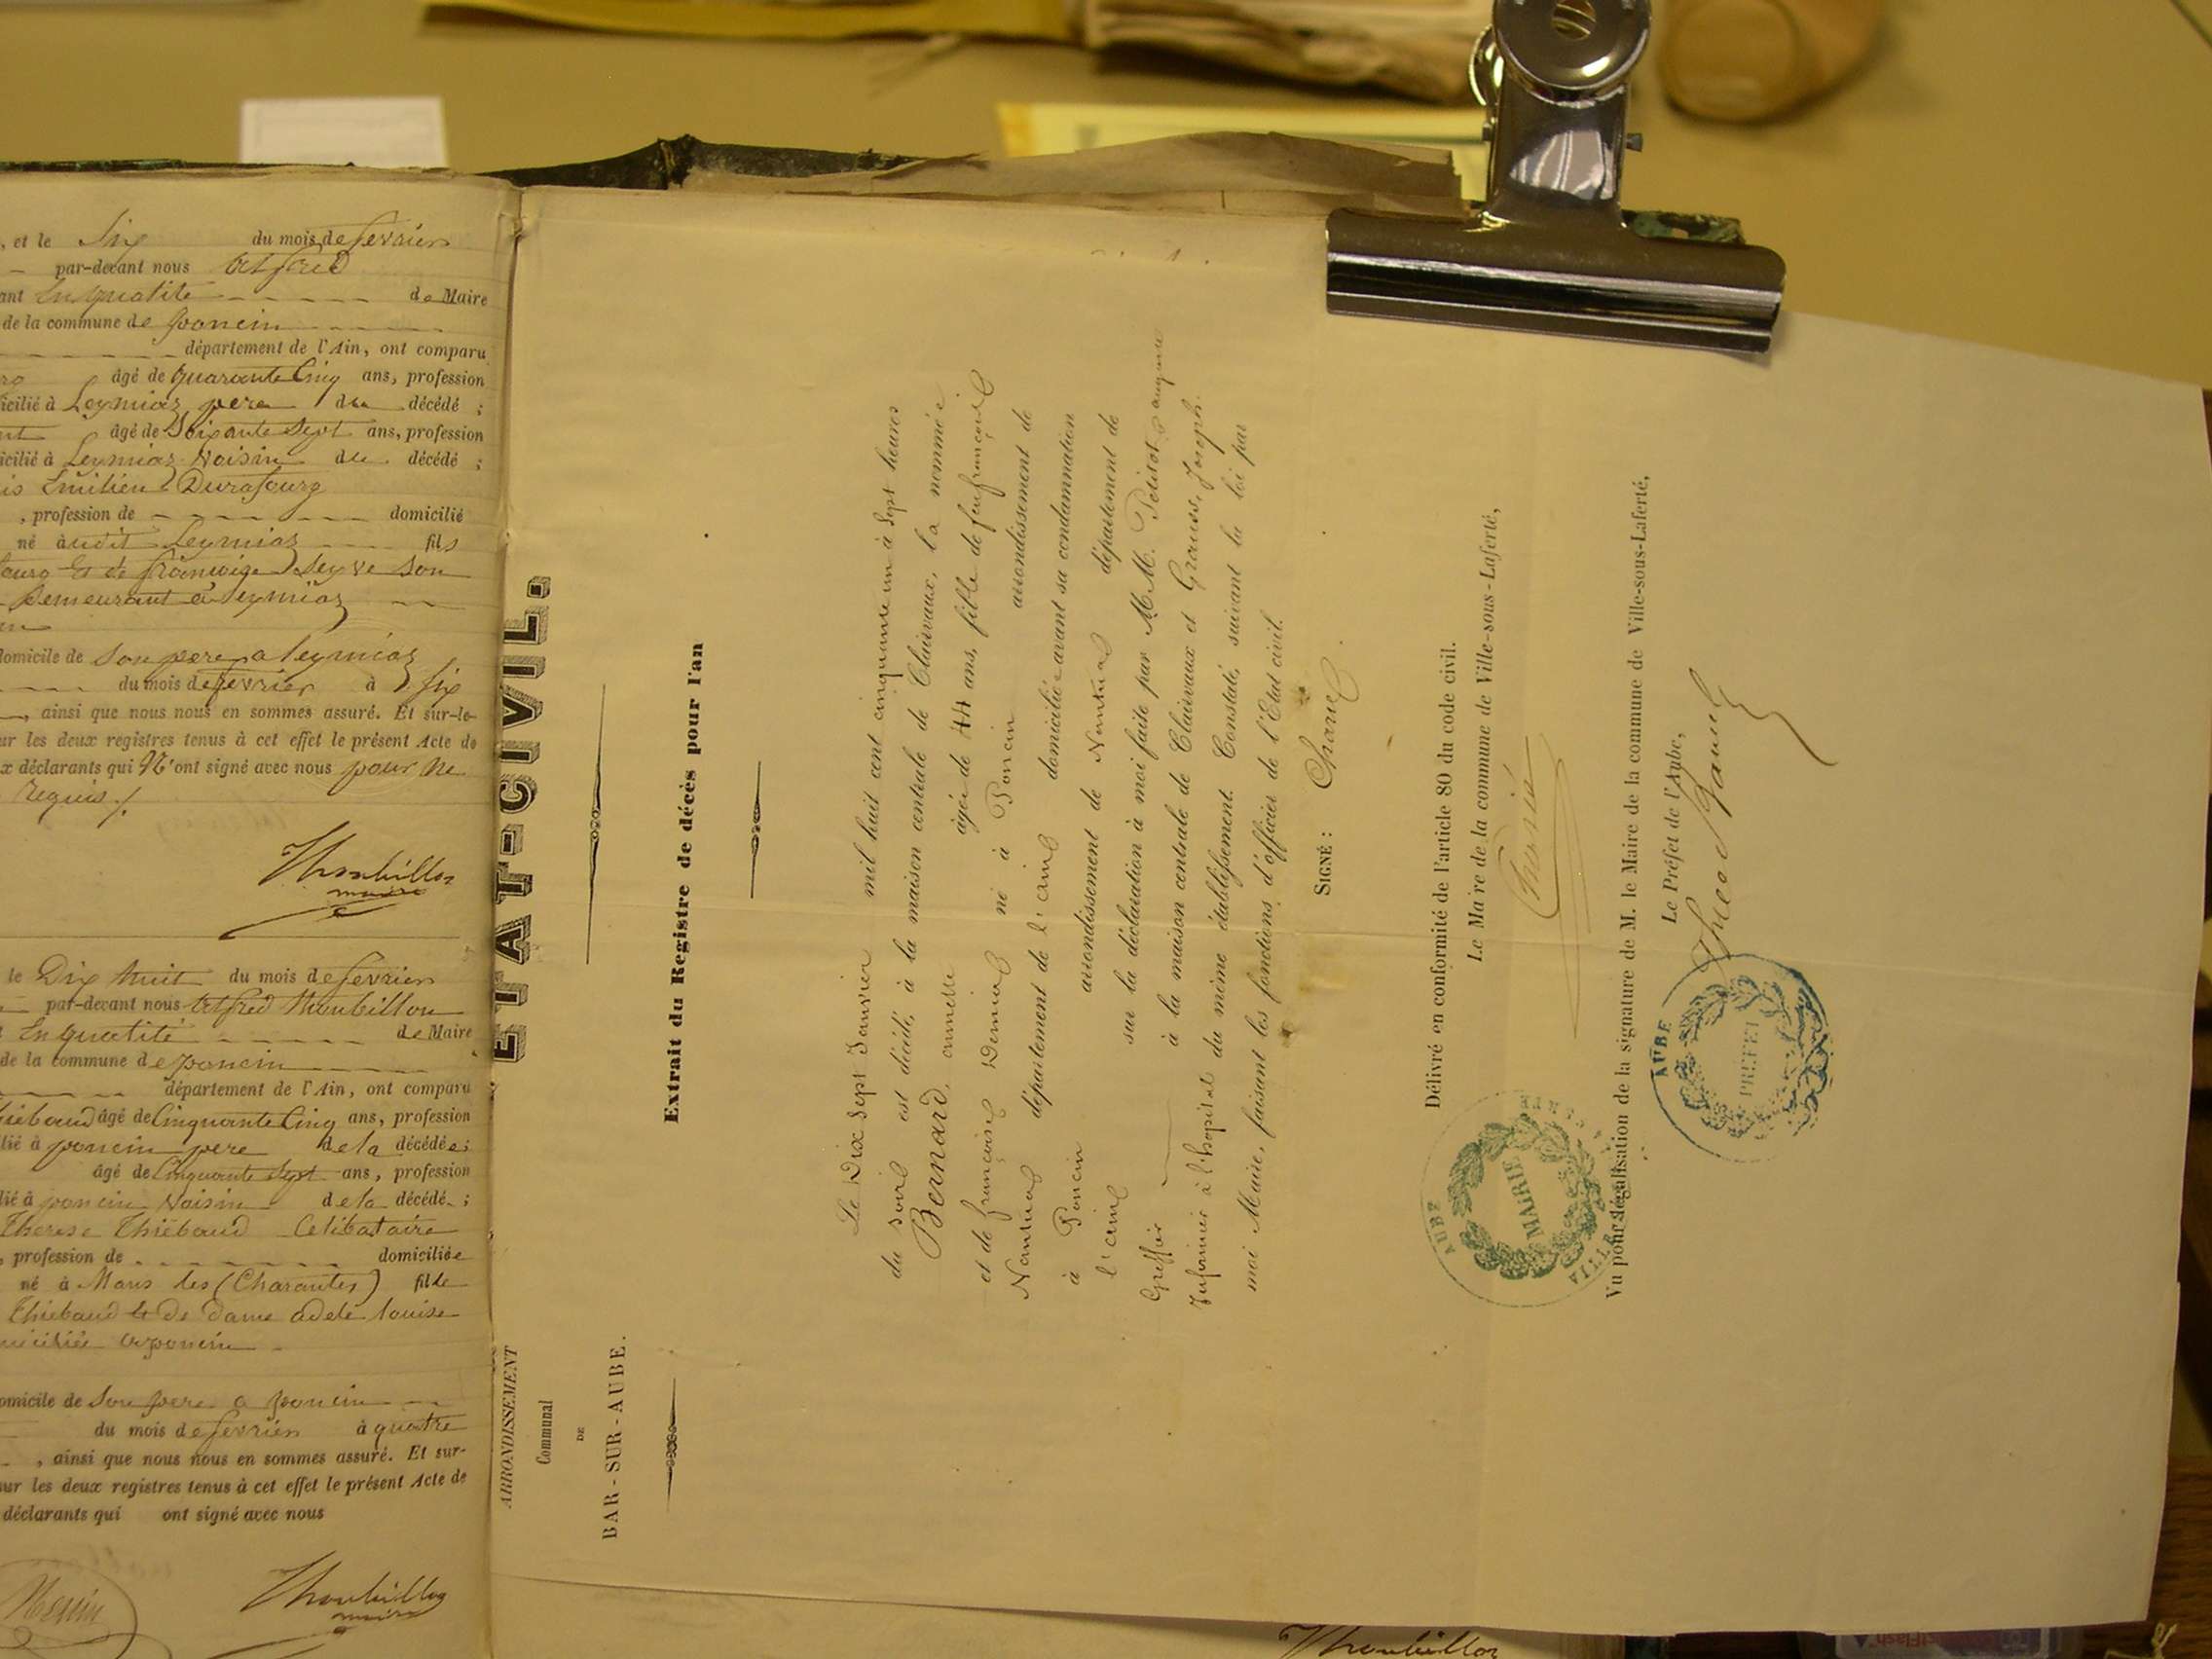 , et le Six du mois de fevrier
par-devant nous Alfred
ant En qualité de Maire
de la commune de poncin
département de l'Ain, ont comparu
âgé de quarante Cinq ans, profession
icilié à Leymiaz pere du décédé ;
âgé de Soixante Sept ans, profession
icilié à Leymiaz Voisin du décédé ;
is Emilien Durafourg
, profession de domicilié
né audit Leymiaz fils
ourg et de françoise Seyve son
Demeurant a Leymiaz
domicile de Son pere a leymiaz
du mois de fevrier à Six
, ainsi que nous nous en sommes assuré. Et sur-le-
ur les deux registres tenus à cet effet le présent Acte de
x déclarants qui N'ont signé avec nous pour ne
Requis ./.
Thoubillon
maire
le Dix huit du mois de fevrier
par-devant nous Alfred Thoubillon
En qualité de Maire
de la commune de poncin
département de l'Ain, ont comparu
hiebaud âgé de Cinquante Cinq ans, profession
lié à poncin pere de la décédée ;
âgé de Cinquante Sept ans, profession
lié à poncin Voisin de la décédé ;
Therese Thiébaud Celibataire
, profession de domiciliée
né à Mans les (Charantes) fille
Thiebaud et de Dame adele louise
miciliée a poncin
omicile de Son pere a poncin
du mois de fevrier à quatre
, ainsi que nous nous en sommes assuré. Et sur-
ur les deux registres tenus à cet effet le présent Acte de
déclarants qui ont signé avec nous
Thoubillon
maire
ARRONDISSEMENT
Communal
DE
BAR-SUR-AUBE.
ETAT-CIVIL.
Extrait du Registre de décès pour l'an
Le Dix Sept Janvier mil huit cent cinquante un à Sept heures
du soir est décédé, à la maison centrale de Clairvaux, la nommée
Bernard, annette âgée de 44 ans, fille de feu françois
et de françoise Demia né à Poncin arrondissement de
Nantua département de l'ain domiciliée avant sa condamnation
à Poncin arrondissement de Nantua département de
l'ain sur la déclaration à moi faite par MM. Petitot auguste
Greffier à la maison centrale de Clairvaux et Grauss, Joseph
Infirmier à l'hopital du même établissement. Constaté, suivant la loi par
moi Maire, faisant les fonctions d'officier de l'Etat civil.
SIGNÉ : Charie
Délivré en conformité de l'article 80 du code civil.
Le Maire de la commune de Ville-sous-Laferté,
AUBE
MAIRIE
Vu pour légalisation de la signature de M. le Maire de la commune de Ville-sous-Laferté,
Le Préfet de l'Aube,
AUBE
PREFET
Thoubillon